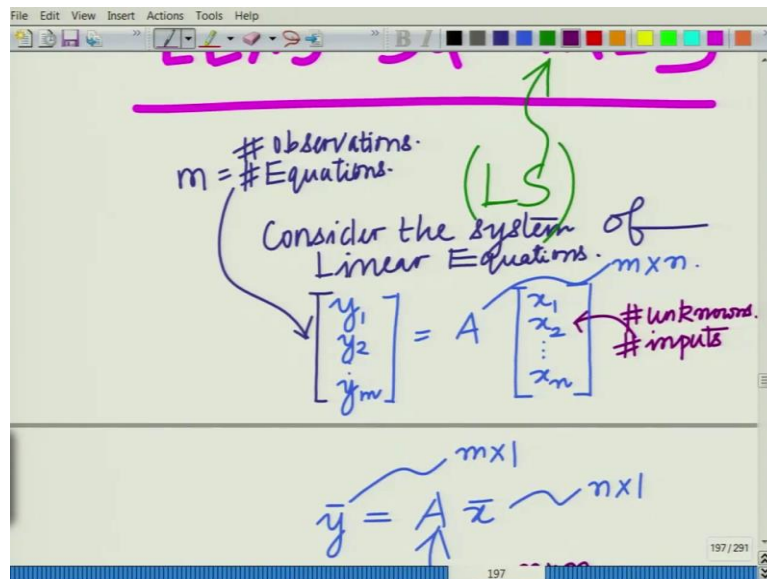 File Edit View Insert Actions Tools Help
B I
# Observations.
m = # Equations.
(LS)
Consider the system of
Linear Equations.
m×n.
[y₁ y₂ ⋮ yₘ] = A [x₁ x₂ ⋮ xₙ]
# unknowns.
# inputs
m×1
ȳ = A x̄
n×1
197/291
197